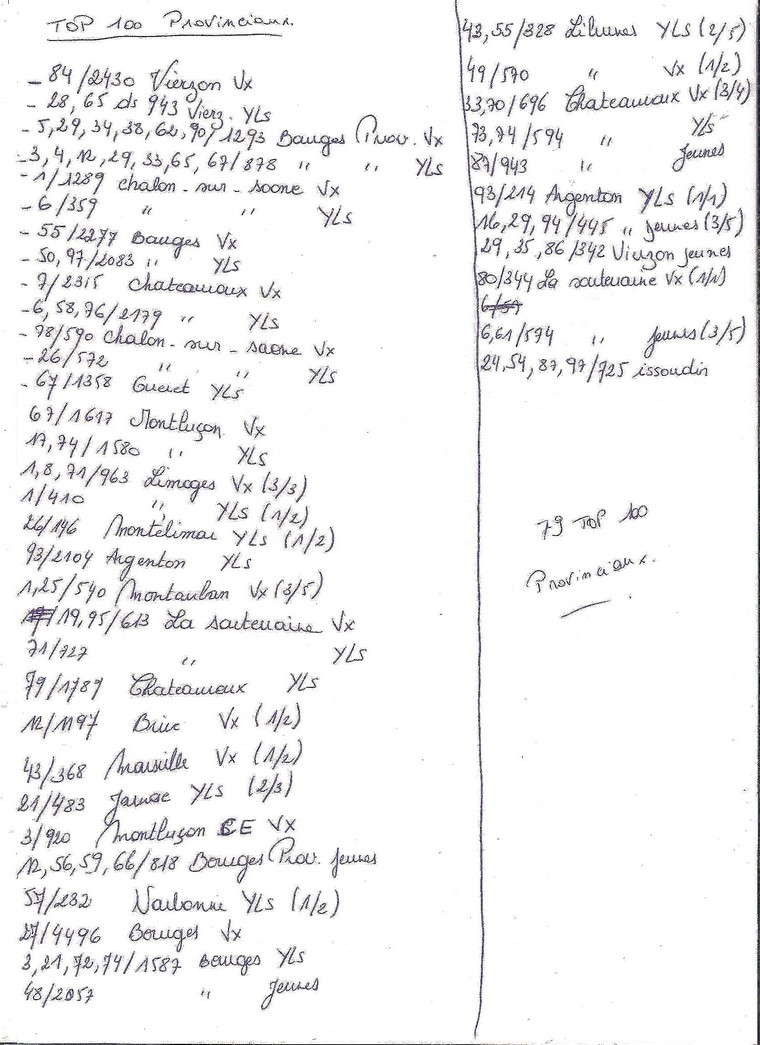 TOP 100 Provinciaux.
- 84/2430 Vierzon Vx
- 28, 65 ds 943 Vierz. YLS
- 5,29,34,38,62,90/1293 Bourges Prov. Vx
- 3,4,12,29,33,65,67/878 " " YLS
- 1/1289 chalon-sur-saone Vx
- 6/359 " " YLS
- 55/2277 Bourges Vx
- 50,97/2083 " YLS
- 7/2315 Chateauroux Vx
- 6,58,76/2179 " YLS
- 78/590 chalon-sur-saone Vx
- 26/572 " " YLS
- 67/1358 Gueret YLS
67/1617 Montluçon Vx
17,74/1580 " YLS
1,8,71/963 Limoges Vx (3/3)
1/410 " YLS (1/2)
26/146 Montélimar YLS (1/2)
93/2104 Argenton YLS
1,25/540 Montauban Vx (3/5)
19,95/613 La souteraine Vx
71/727 " YLS
79/1789 Chateauroux YLS
12/1197 Brive Vx (1/2)
43/368 Marseille Vx (1/2)
21/483 Jarnac YLS (2/3)
3/920 Montluçon CE Vx
12,56,59,66/818 Bourges Prov. Jeunes
57/232 Narbonne YLS (1/2)
27/4496 Bourges Vx
3,21,72,74/1587 Bourges YLS
48/2057 " Jeunes
43,55/328 YLS (2/5)
49/570 " Vx (1/2)
33,70/696 Chateauroux Vx (3/4)
73,74/594 " YLS
87/943 " Jeunes
93/214 Argenton YLS (1/1)
16,29,94/445 " Jeunes (3/5)
29,35,86/342 Vierzon jeunes
80/344 La souteraine Vx (1/1)
6/59
6,61/574 " Jeunes (3/5)
24,54,87,97/725 issoudin
79 TOP 100
Provinciaux.